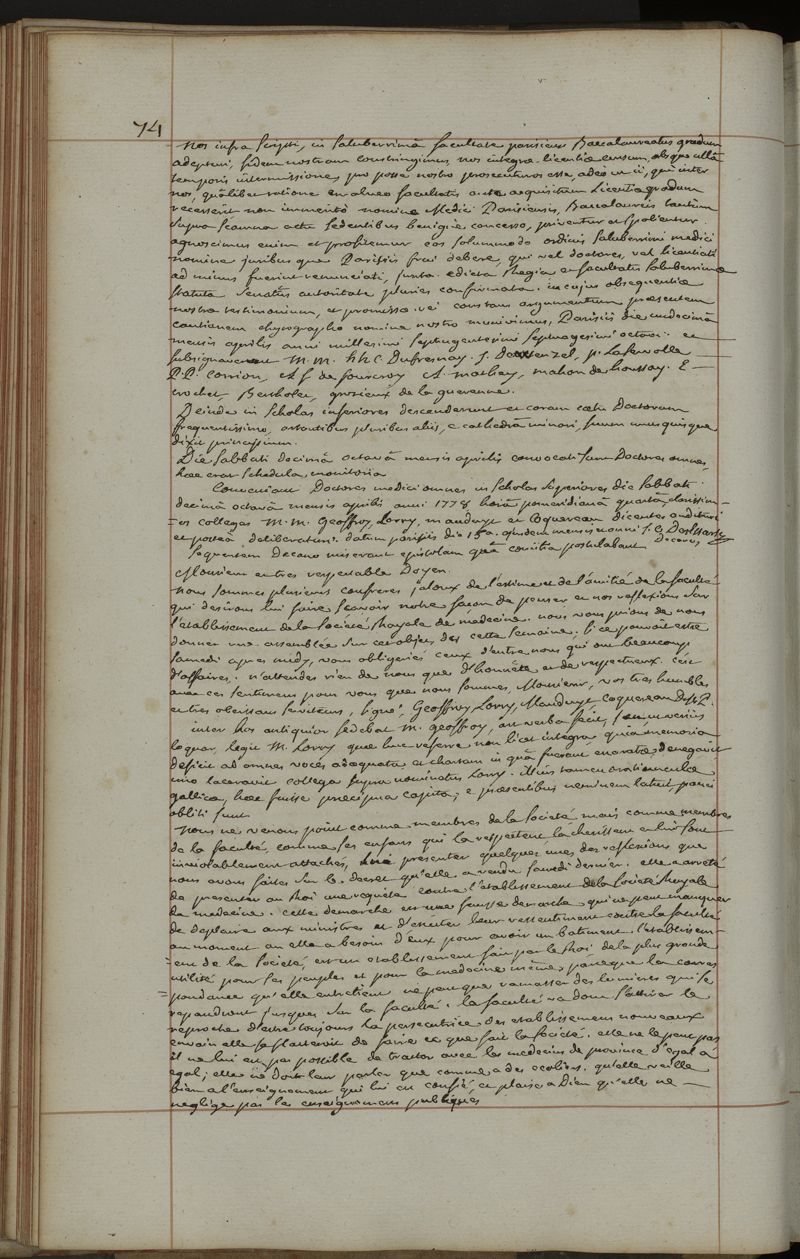 74
Nos infra scripti, in saluberrimâ facultate parisiensi Baccalaureatus gradum
adepturi, fidem nostram constringimus, nos integra licentiae censum, absque ullâ
temporis intermissione, pro posse nostro prosecuturos esse, adeo ut ii, qui inter
nos, quâlibet ratione en almae facultatis ante acquisitum Licentiae gradum
recesserint non immeritò nomine Medici Parisiensis, Baccalaureis tantùm
supra scamna actu sedentibus benigne concesso, priventur et spolientur.
agnoscimus enim et profitemur eos solummodo ordinis saluberrimi medici
nomine juribusque Parisiis frui debere, qui vel doctores, vel licentiati
ad minus fuerint renunciati, juxta edicta Regia et facultatis saluberrimae
statuta Senatûs autoritate pluries confirmata. in cujus obsequentiae
nostrae testimonium, et promissae rei constans argumentum praesentem
cautionem chyrographo nomine nostro munivimus, Parisiis die undecimâ
mensis aprilis anni millesimi septingentesimi septuagesimi octavi. et
subsignaverunt M.M. hh C. Dufresnay. J. Dawenzel, p. Laservolle
P.P. Corrion, Af de fourcroy A. Mathey, Mahon de houssay. E
Crochet Bertholet, groxieux de la guerenne.
Deinde in Scholas inferiores descenderunt et coram coetu Doctorum
frequentissimo, astantibus pluribus aliis, e cathedrâ minori, suum unusquisque
dixit principium.
Die sabbati decimâ octavâ mensis aprilis convocati sunt Doctores omnes,
haec erat schedula monitoria
Conveniant Doctores medici omnes in Scholas superiores die sabbati
decimâ octavâ mensis aprilis anni 1778 horâ pomeridianâ quartâ, clarissim-
-os collegas M.M. Geoffroy, Lorry, mauduyt et Coquereau dicentes audituri
et postea deliberaturi. datum parisiis die 15a. ejusdem mensis et anni J.C. Des Essartz
Decanus
sequentem Decano miserant epistolam quâ comitia postulabant
Monsieur et tres respectable Doyen.
nous sommes plusieurs confreres jaloux de l'estime et de l'amitié de la faculté
qui desirons lui faire sçavoir notre façon de penser et nos reflexions sur
l'etablissement de la societé Royale de medecine. nous vous prions de nous
donner une assemblée sur cet objet dès cette semaine. si ce pouvoit etre
samedi apres midy, vous obligeriés ceux d'entre nous qui ont beaucoup
d'affaires. n'attendes rien de nous que d'honnête et de respectueux. c'est
avec ces sentimens pour vous que nous sommes, Monsieur, vos tres humbles
et tres obeissans serviteurs, signé, Geoffroy, Lorry, Mauduyt Coquereau D.M.P.
inter hos antiquior sedebat M. geoffroy, an verba fecit, seu ut veriùs
loquar, legit M. Lorry quae huc referre non licet integra quia memoria
deficit ad omnes voces adaequatas et chartam in quâ fuerant exaratae denegavit
imo laceravit collega supra nominatus Lorry. illius tamen oratiunculae
gallicae, haec fuisse praecipua capita; e praesentibus neminem latuit, pauci
obliti sunt
nous ne venons point comme membres de la societé mais comme membres
de la faculté, comme ses enfans qui la respectent la cherissent et lui sont
inviolablement attachés, lui presenter quelques unes des reflexions que
nous avons faites sur le decret qu'elle a rendu samedi dernier. elle a arreté
de presenter au Roi une requête contre l'etablissement de la Societé Royale
de medecine. cette demarche est une fausse demarche qui ne peut manquer
de deplaire aux ministres et d'exciter leur ressentiment contre la faculté
au moment ou elle a besoin d'eux pour avoir un batiment. l'etablissem-
-ent de la societé, est un etablissement fait par le Roi de la plus grande
utilité pour les peuples et pour la medecine même, parceque la corres
=pondance qu'elle entretient ne peut que ramasser des lumieres qui se
repandront jusques sur la faculté. la faculté va donc s'attirer le
reproche d'etre toujours la persecutrice des etablissemens nouveaux
en vain elle se flatteroit de faire ce que fait la societé. elle ne le peut pas
il ne lui est pas possible de traiter avec les medecins de province d'egal à
egal; elle ne doit leur parler que comme a des ecoliers. qu'elle veille
bien a l'enseignement qui lui est confié, et plaise a Dieu qu'elle ne
neglige pas les enseignemens publiques